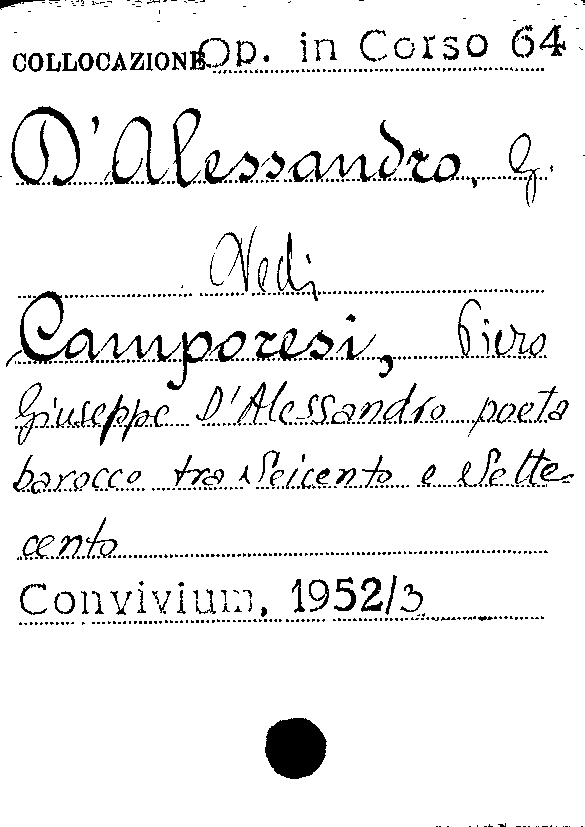 COLLOCAZIONE Op. in Corso 64
D'Alessandro, G.
Vedi
Camporesi, Piero
Giuseppe D'Alessandro poeta
barocco tra Seicento e Sette-
cento
Convivium, 1952/3